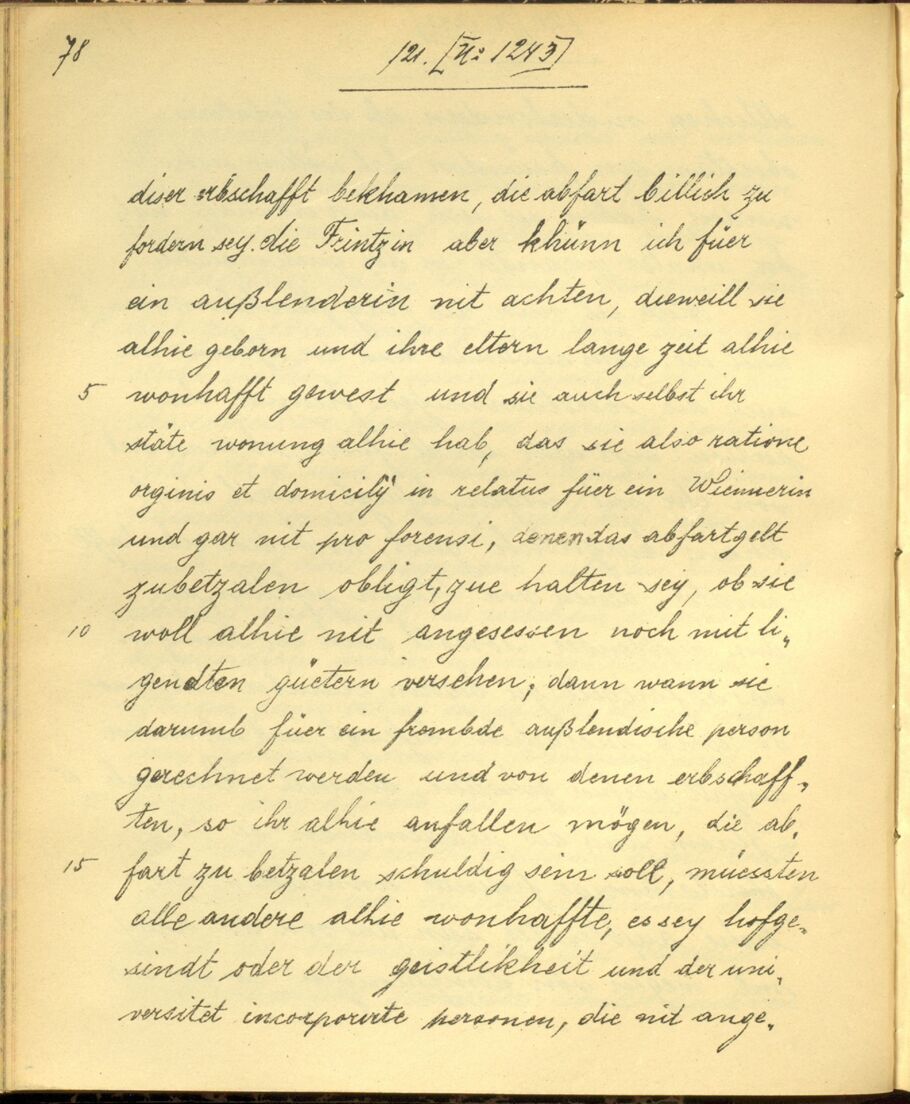 78
121. [N: 1243]
diser erbschafft bekhamen, die abfart billich zu
fordern sey. die Frintzin aber khünn ich füer
ein außlenderin nit achten, dieweill sie
alhie geborn und ihre eltern lange zeit alhie
5 wonhafft gewest und sie auch selbst ihr
stäte wonung alhie hab, das sie also ratione
orginis et domicilÿ in relatus füer ein Wiennerin
und gar nit pro forensi, denen das abfartgelt
zubetzalen obligt, zue halten sey, ob sie
10 woll alhie nit angesessen noch mit li„
gendten güetern versehen; dann wann sie
darumb füer ein frembde außlendische person
gerechnet werden und von denen erbschaff„
ten, so ihr alhie anfallen mögen, die ab„
15 fart zu betzalen schuldig sein soll, müessten
alle andere alhie wonhaffte, es sey hofge„
sindt oder der geistlikheit und der uni„
versitet incorporirte personen, die nit ange„